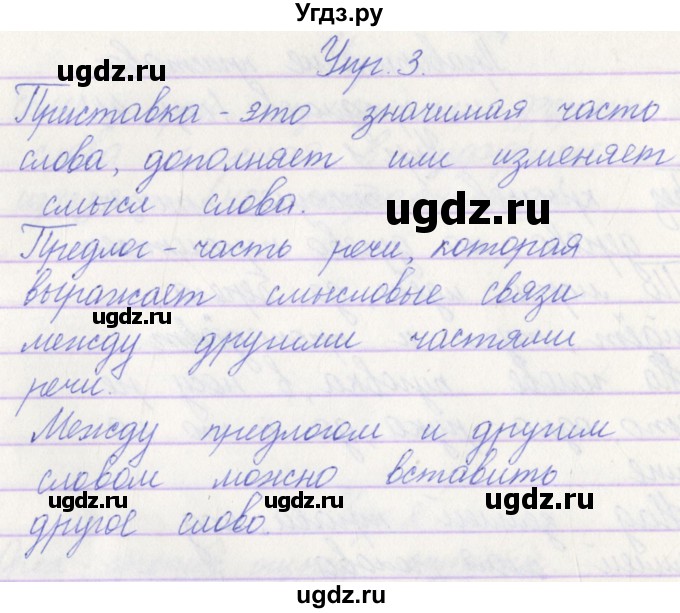 Угдз.ру
Упр. 3.
ugdz.ru
Приставка - это значимая часть
слова, дополняет или изменяет
смысл слова.
ugdz.ru
Предлог - часть речи, которая
выражает смысловые связи
ugdz.ru
между другими частями
речи.
Между предлогом и другим
словом можно вставить
ugdz.ru ugdz.ru ugdz.ru
другое слово.
ugdz.ru